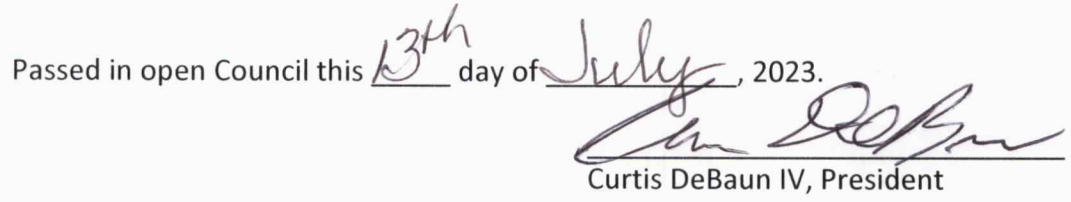 Passed in open Council this 13th day of July, 2023.
Curtis DeBaun IV, President